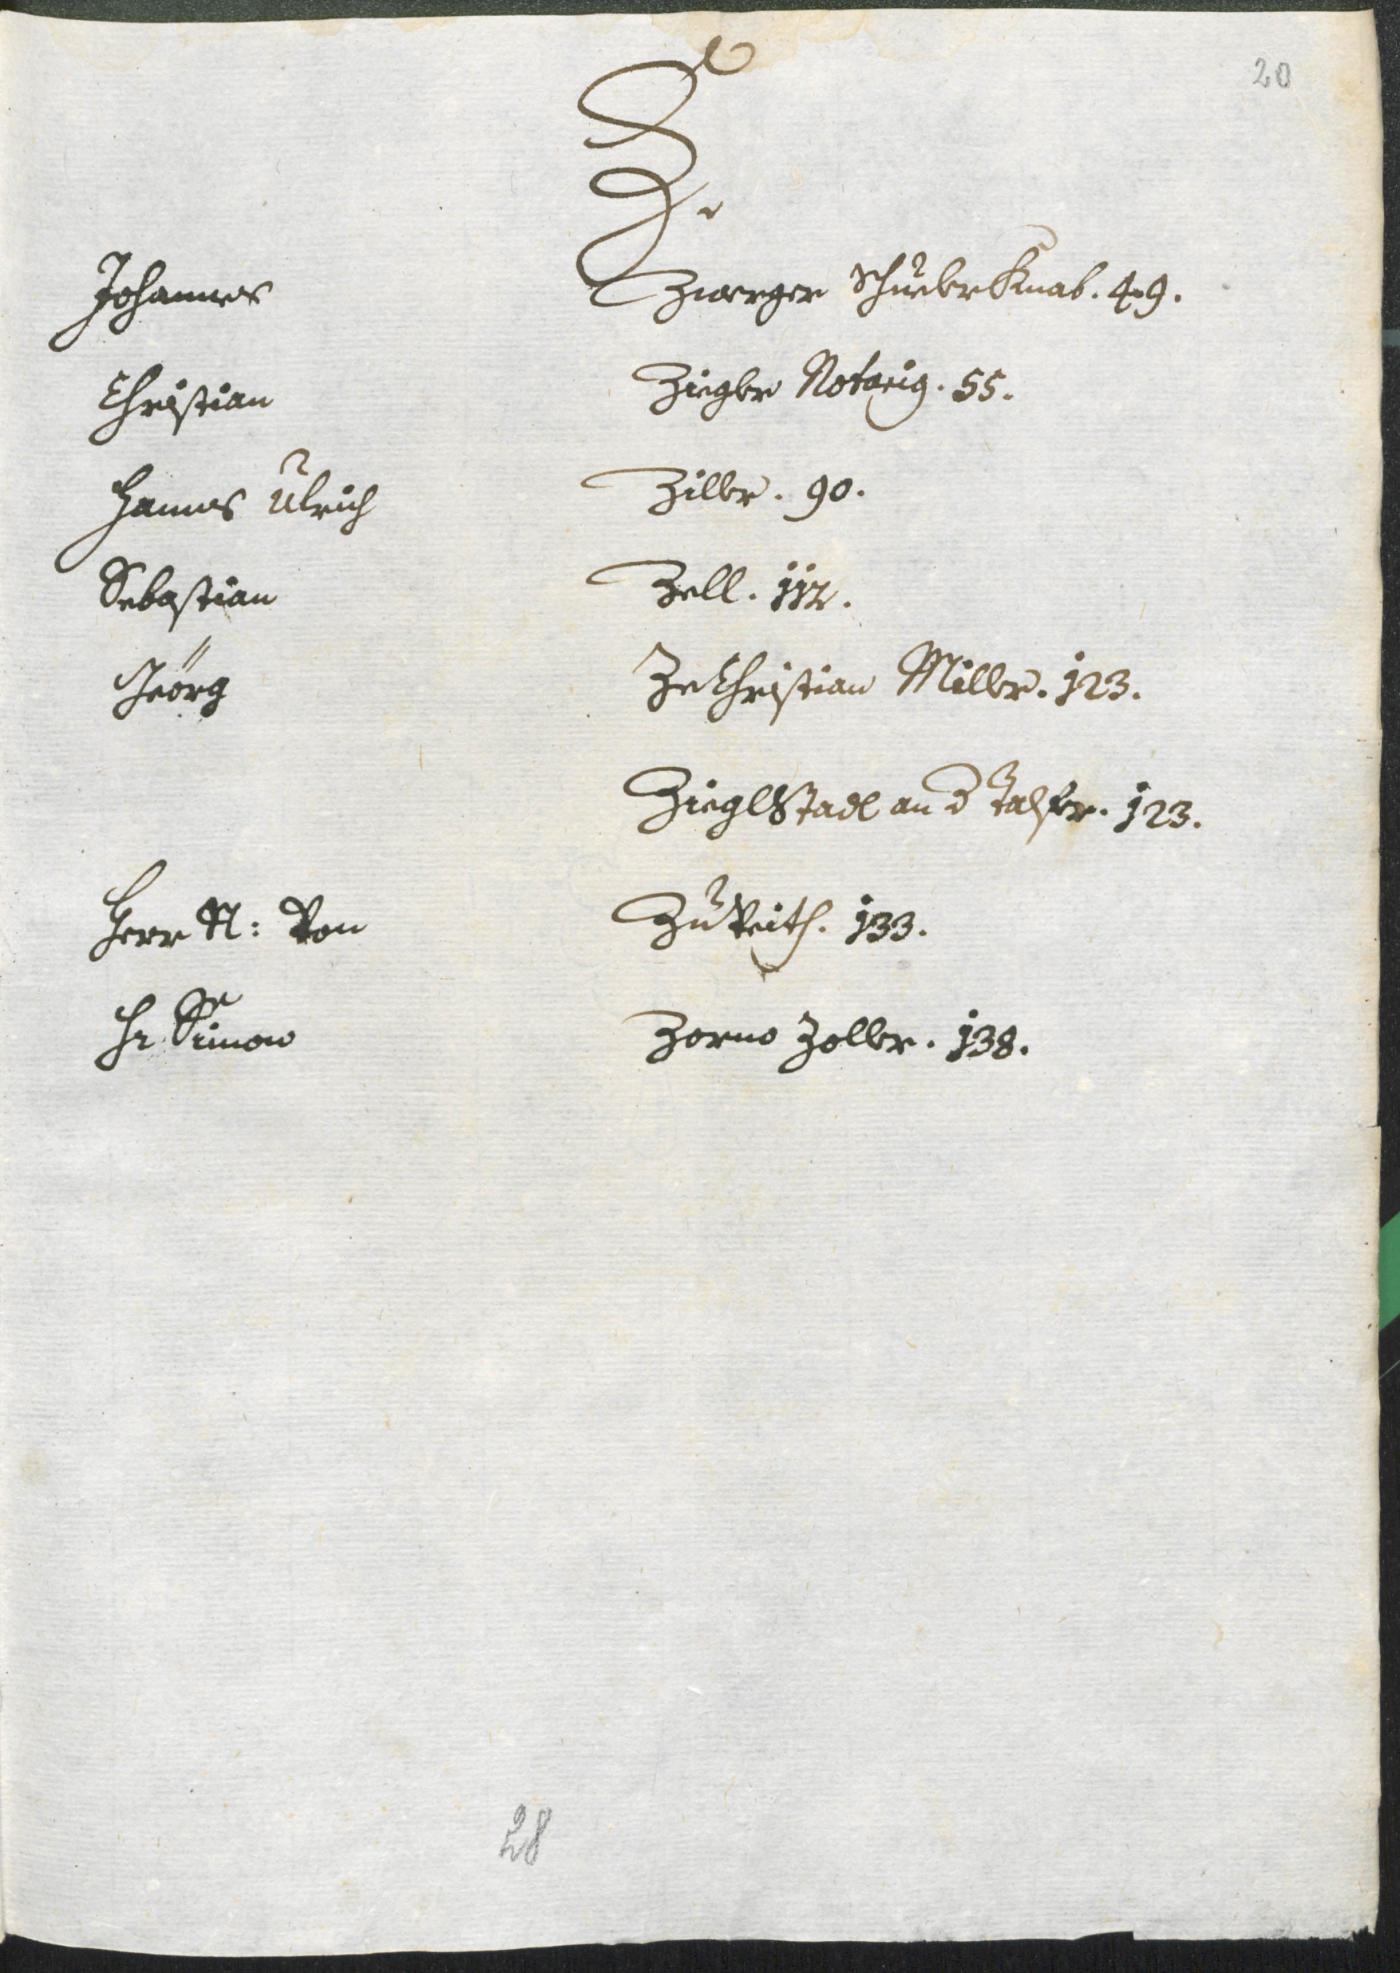 20
Z.
Johannes Zwerger Schuelerknab. 49.
Christian Ziegler Notarig. 55.
Hannes Ulrich Ziller. 90.
Sebastian Zell. 112.
Jeörg Ze Christian Miller. 123.
ZieglStadl an d Talfer. 123.
Herr N: Von Zu 133.
Hr. Simon Zorno Zoller. 138.
28